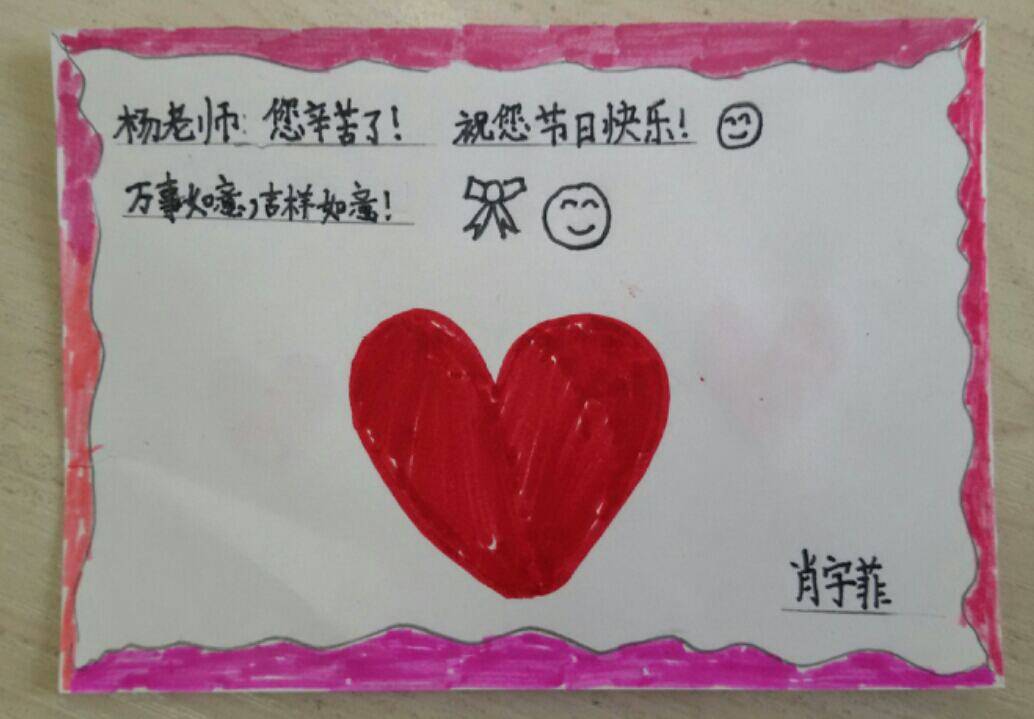 杨老师:您辛苦了! 祝您节日快乐!
万事如意,吉样如意!
肖宇菲